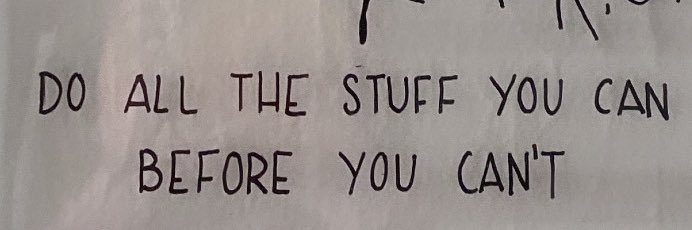 DO ALL THE STUFF YOU CAN
BEFORE YOU CAN'T